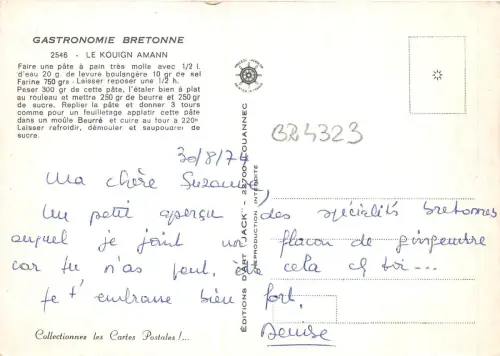 GASTRONOMIE BRETONNE
2546 - LE KOUIGN AMANN
Faire une pâte à pain très molle avec 1/2 l.
d'eau 20 g. de levure boulangère 10 gr de sel
Farine 750 grs - Laisser reposer une 1/2 h.
Peser 300 gr de cette pâte, l'étaler bien à plat
au rouleau et mettre 250 gr de beurre et 250 gr
de sucre. Replier la pâte et donner 3 tours
comme pour un feuilletage applatir cette pâte
dans un moûle Beurré et cuire au four à 220°
Laisser refroidir, démouler et saupoudrer de
sucre.
ÉDITIONS D'ART "JACK" - 22700 LOUANNEC
REPRODUCTION INTERDITE
B24323
30/8/74
Ma chère Suzanne,
Un petit aperçu des spécialités bretonnes
auquel je joint un flacon de gingembre
car tu n'as peut, être cela ch toi ...
Je t'embrasse bien fort,
Denise
Collectionnez les Cartes Postales !...